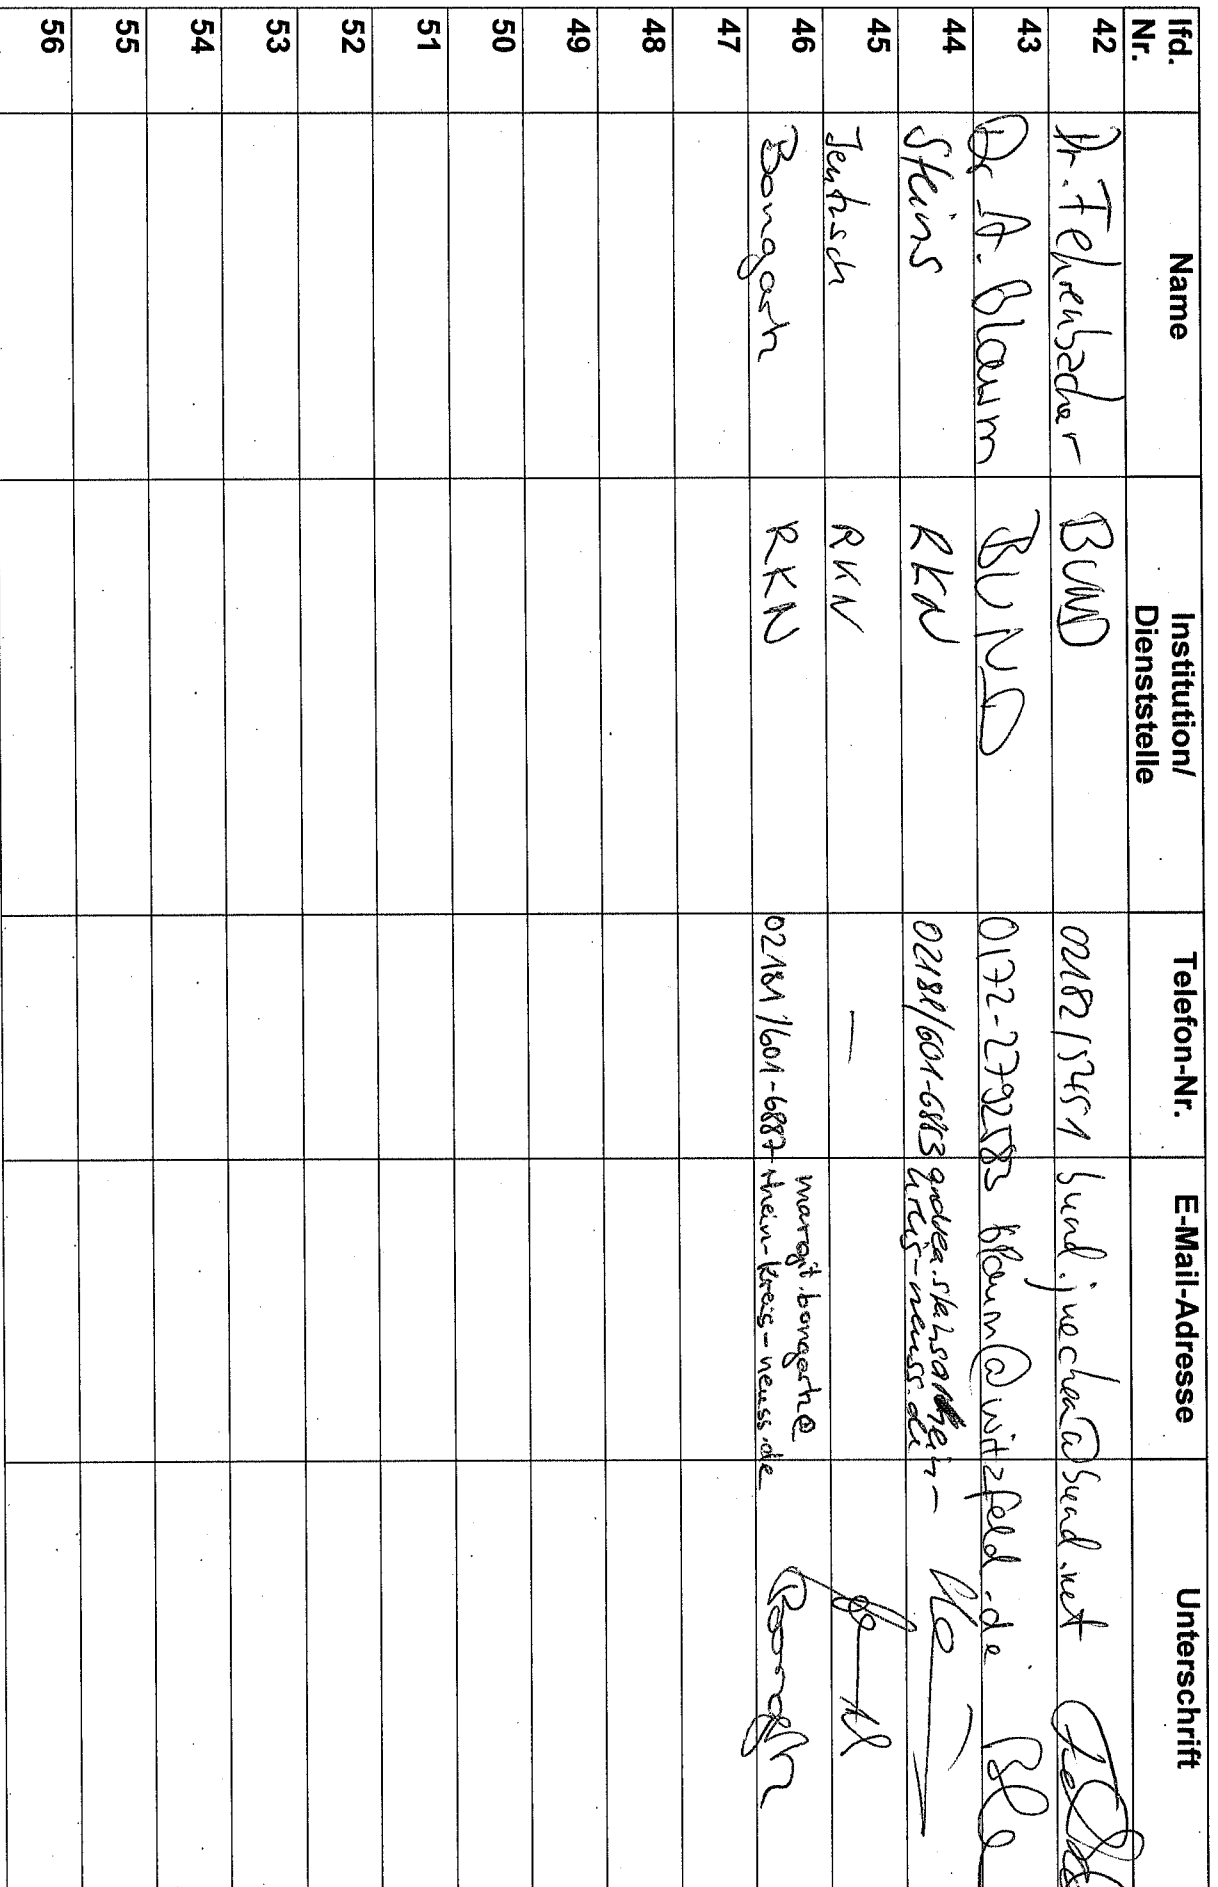 lfd. Nr. Name Institution/ Dienststelle Telefon-Nr. E-Mail-Adresse Unterschrift
42 Dr. Fehrenbacher BUND 02182/57451 bund.juechen@bund.net
43 Dr. A. Blaum BUND 0172-2792583 blaum@witzfeld.de
44 Steins RKN 02181/601-6813
kreis-neuss.de
45 Jentzsch RKN —
46 Bongartz RKN 02181/601-6887 margit.bongartz@
rhein-kreis-neuss.de Bongartz
47
48
49
50
51
52
53
54
55
56